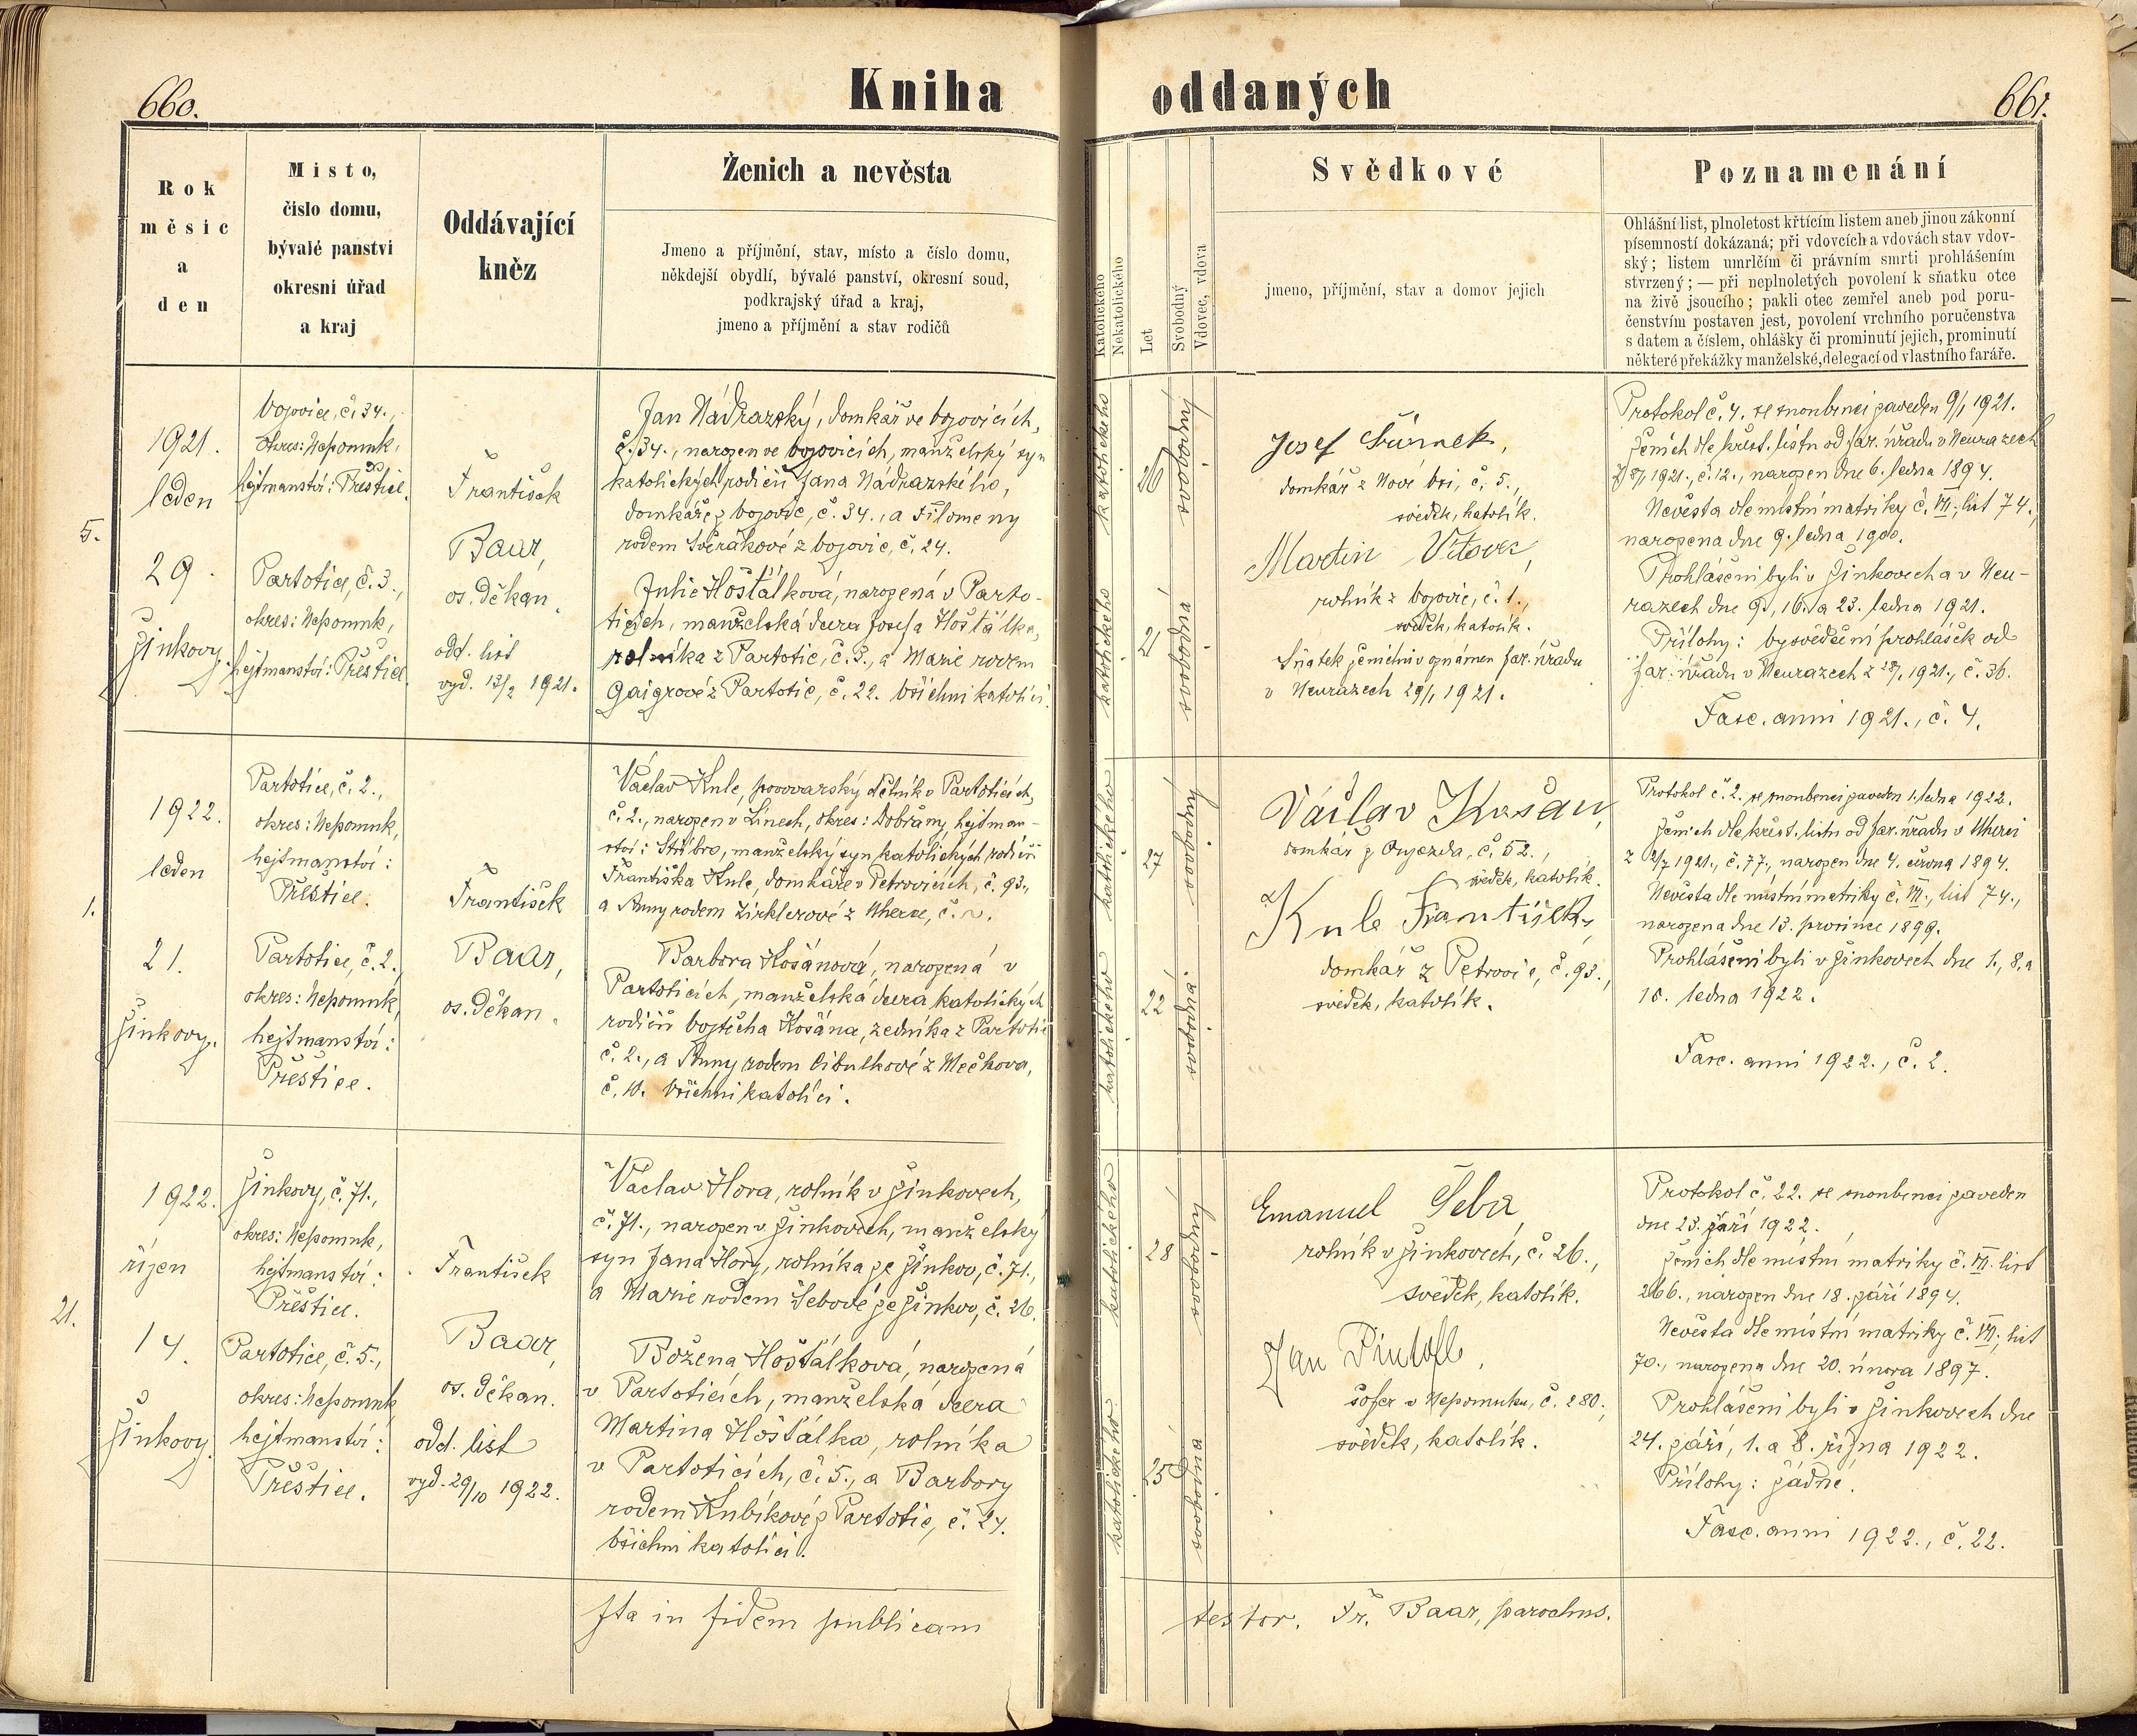 660.
Kniha
oddaných
661.
Rok
měsíc
a
den
Místo,
číslo domu,
bývalé panství
okresní úřad
a kraj
Oddávající
kněz
Ženich a nevěsta
Jmeno a příjmění, stav, místo a číslo domu,
někdejší obydlí, bývalé panství, okresní soud,
podkrajský úřad a kraj,
jmeno a příjmění a stav rodičů
Katolického
Nekatolického
Let
Svobodný
Vdovec, vdova
Svědkové
jmeno, příjmění, stav a domov jejich
Poznamenání
Ohlášní list, plnoletost křtícím listem aneb jinou zákonní
písemností dokázaná; při vdovcích a vdovách stav vdov-
ský; listem umrlčím či právním smrti prohlášením
stvrzený; — při neplnoletých povolení k sňatku otce
na živě jsoucího; pakli otec zemřel aneb pod poru-
čenstvím postaven jest, povolení vrchního poručenstva
s datem a číslem, ohlášky či prominutí jejich, prominutí
některé překážky manželské, delegací od vlastního faráře.
5.
1921.
leden
29.
Žinkovy.
Vojovice, č. 34.,
okres: Nepomuk,
hejtmanství: Přeštice.
Partotice, č. 3.,
okres: Nepomuk,
hejtmanství: Přeštice.
František
Baar,
os. děkan.
odd. list
vyd. 13/2 1921.
Jan Nádrazský, domkář ve Vojovicích,
č. 34., narozen ve Vojovicích, manželský syn
katolických rodičů Jana Nádrazského,
domkáře z Vojovic, č. 34., a Filomeny
rodem Svěrákové z Vojovic, č. 24.
Julie Hošťálková, narozená v Parto-
ticích, manželská dcera Josefa Hošťálka,
rolníka z Partotic, č. 3., a Marie rodem
Gaigrové z Partotic, č. 22. Všichni katolíci.
katolického
26
svobodný
katolického
21
svobodná
Josef
domkář z Nové Vsi, č. 5.,
svědek, katolík.
Martin
rolník z Vojovic, č. 1.,
svědek, katolík.
Sňatek ženichův oznámen far. úřadu
v Neurazech 29/1 1921.
Protokol č. 4. se snoubenci zaveden 9/1 1921.
Ženich dle křest. listu od far. úřadu v Neurazech
z 8/1 1921., č. 12., narozen dne 6. ledna 1894.
Nevěsta dle místní matriky č. VII., list 74.,
narozena dne 9. ledna 1900.
Prohlášeni byli v Žinkovech a v Neu-
razech dne 9., 16. a 23. ledna 1921.
Přílohy: vysvědčení prohlášek od
far. úřadu v Neurazech z 28/1 1921., č. 36.
Fasc. anni 1921., č. 4.
1.
1922.
leden
21.
Žinkovy.
Partotice, č. 2.,
okres: Nepomuk,
hejtmanství:
Přeštice.
Partotice, č. 2.,
okres: Nepomuk,
hejtmanství:
Přeštice.
František
Baar,
os. děkan.
Václav Kule, pivovarský dělník v Partoticích,
č. 2., narozen v Línech, okres: Dobřany, hejtman-
ství: Stříbro, manželský syn katolických rodičů
Františka Kule, domkáře v Petrovicích, č. 93.,
a Anny rodem Zirklerové z Uherce, č. ~.
Barbora Košanová, narozená v
Partoticích, manželská dcera katolických
rodičů Vojtěcha Košana, zedníka z Partotic
č. 2., a Anny rodem Cibulkové z Mečkova,
č. 10. Všichni katolíci.
katolického
27
svobodný
katolického
22
svobodná
Václav Košan,
domkář z Oujezda, č. 52.,
svědek, katolík.
Kule František,
domkář z Petrovic, č. 93.,
svědek, katolík.
Protokol č. 2. se snoubenci zaveden 1. ledna 1922.
Ženich dle křest. listu od far. úřadu v Uherci
z 2/7 1921., č. 77., narozen dne 4. června 1894.
Nevěsta dle místní matriky č. VII., list 74.,
narozena dne 13. prosince 1899.
Prohlášeni byli v Žinkovech dne 1., 8. a
15. ledna 1922.
Fasc. anni 1922., č. 2.
21.
1922.
říjen
14.
Žinkovy.
Žinkovy, č. 71.,
okres: Nepomuk,
hejtmanství:
Přeštice.
Partotice, č. 5.,
okres: Nepomuk
hejtmanství:
Přeštice.
František
Baar,
os. děkan.
odd. list
vyd. 29/10 1922.
Václav Hora, rolník v Žinkovech,
č. 71., narozen v Žinkovech, manželský
syn Jana Hory, rolníka ze Žinkov, č. 71.,
a Marie rodem Šebové ze Žinkov, č. 26.
Božena Hošťálková, narozená
v Partoticích, manželská dcera
Martina Hošťálka, rolníka
v Partoticích, č. 5., a Barbory
rodem Kubíkové z Partotic, č. 24.
Všichni katolíci.
katolického
28
svobodný
katolického
25
svobodná
Emanuel Šeba,
rolník v Žinkovech, č. 26.,
svědek, katolík.
Jan
šofer v Nepomuku, č. 280.,
svědek, katolík.
Protokol č. 22. se snoubenci zaveden
dne 23. září 1922.
Ženich dle místní matriky č. VII. list
266., narozen dne 18. září 1894.
Nevěsta dle místní matriky č. VII., list
70., narozena dne 20. února 1897.
Prohlášeni byli v Žinkovech dne
24. září, 1. a 8. října 1922.
Přílohy: žádné.
Fasc. anni 1922., č. 22.
Ita in fidem publicam
testor. Fr. Baar, parochus.